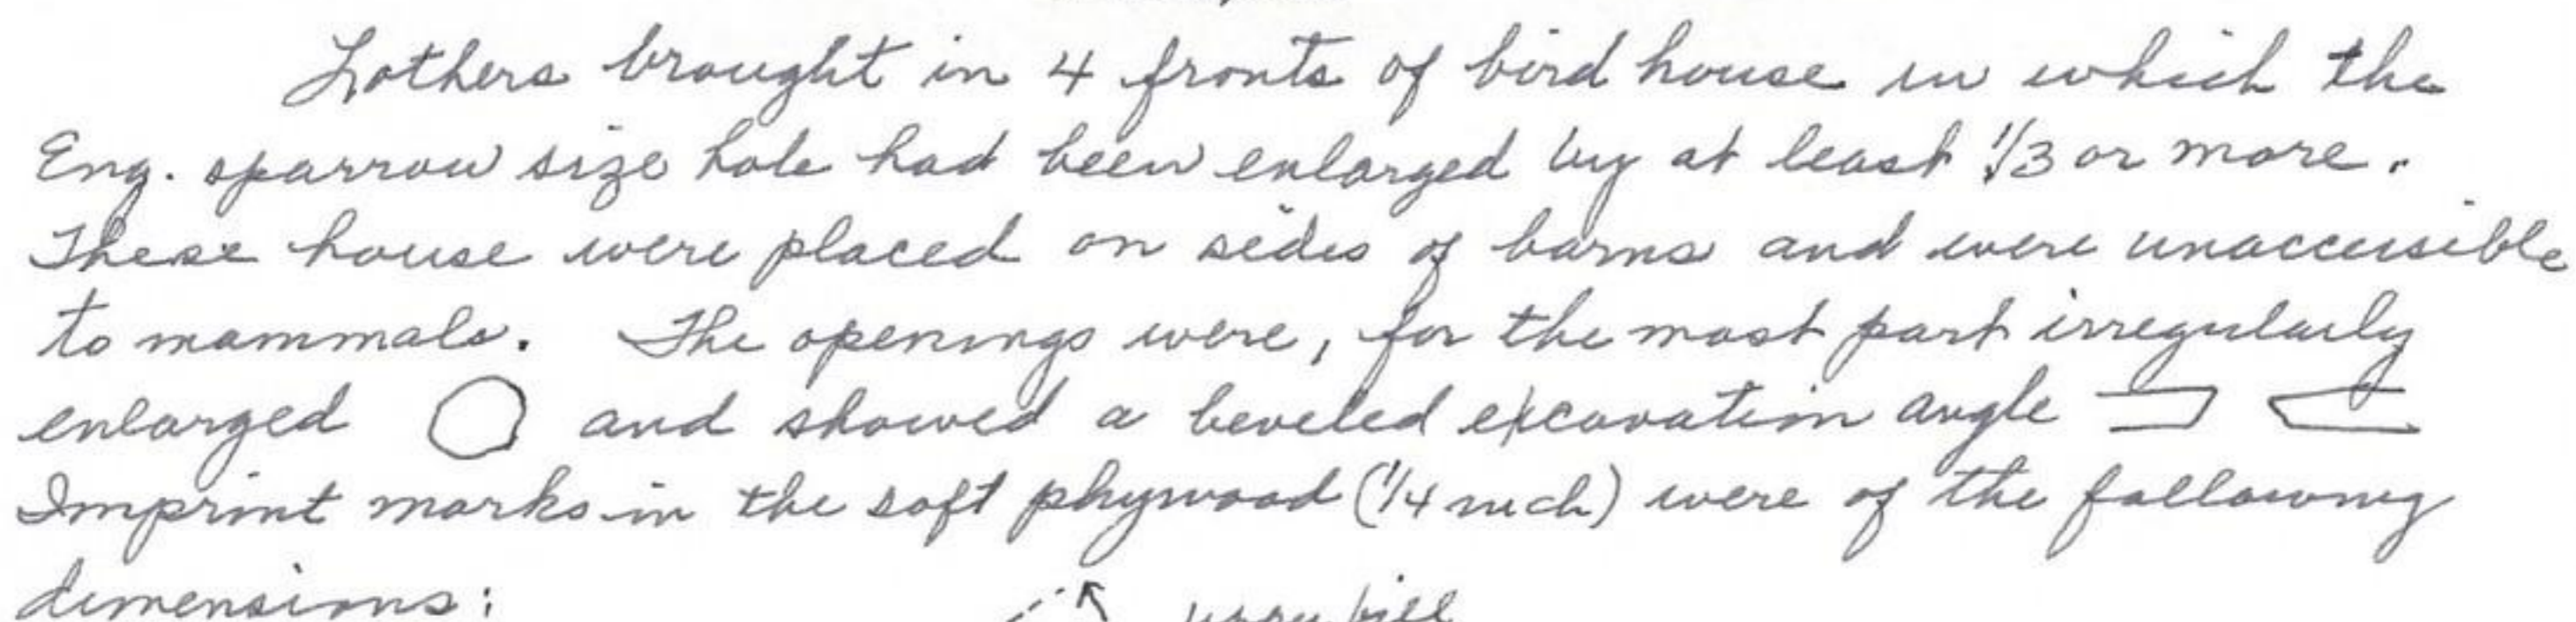 Lothers brought in 4 fronts of bird house in which the
Eng. sparrow size hole had been enlarged by at least 1/3 or more.
These house were placed on sides of barns and were unaccessible
to mammals. The openings were, for the most part irregularly
enlarged and showed a beveled excavation angle
Imprint marks in the soft phywood (1/4 inch) were of the following
dimensions:
bill